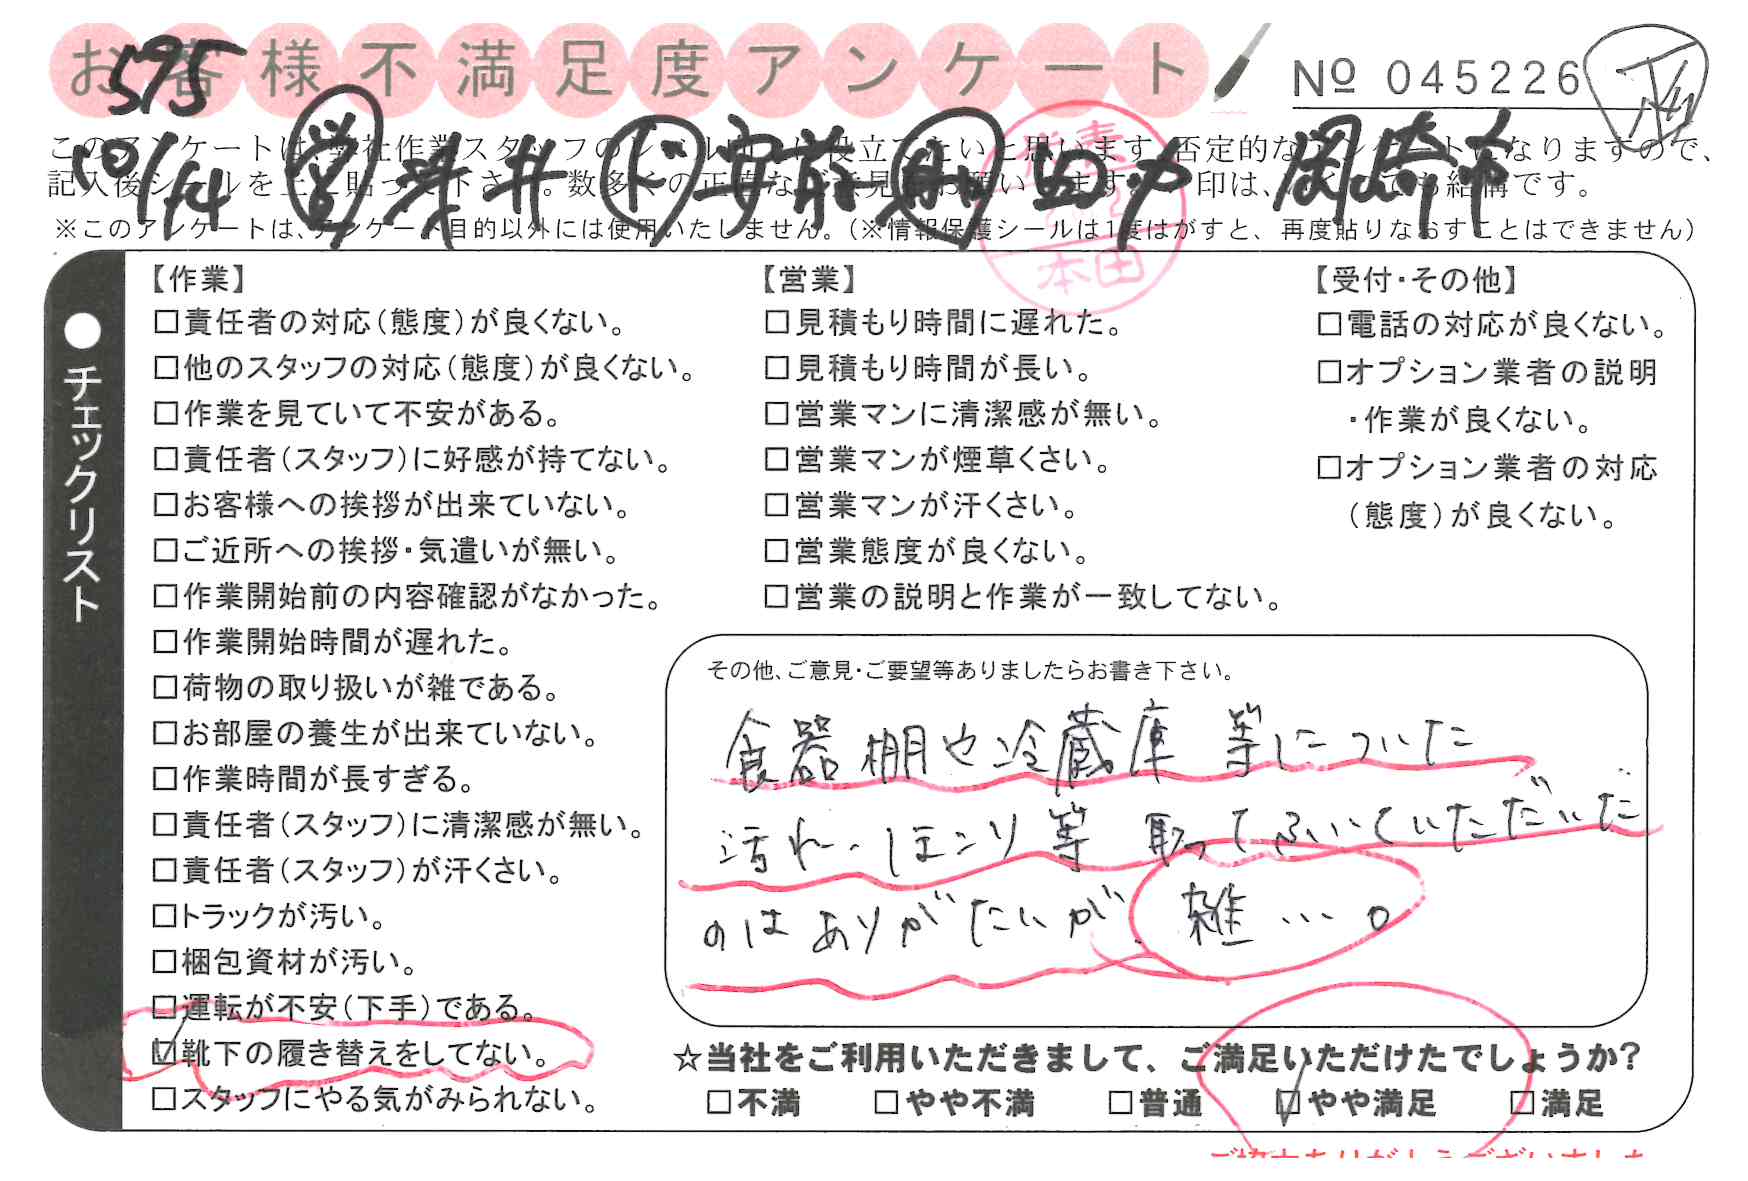 お客様不満足度アンケート
№ 045226
575
このアンケートは、弊社作業スタッフのレベル向上に役立てたいと思います。否定的なアンケートになりますので、
記入後シールを上に貼って下さい。数多くの正直なご意見をお願いします。 印は、 も結構です。
10/14 営 津井 ド 安前 副 田中 岡崎市
※このアンケートは、アンケート目的以外には使用いたしません。(※情報保護シールは1度はがすと、再度貼りなおすことはできません)
本田
●チェックリスト
【作業】
□責任者の対応(態度)が良くない。
□他のスタッフの対応(態度)が良くない。
□作業を見ていて不安がある。
□責任者(スタッフ)に好感が持てない。
□お客様への挨拶が出来ていない。
□ご近所への挨拶・気遣いが無い。
□作業開始前の内容確認がなかった。
□作業開始時間が遅れた。
□荷物の取り扱いが雑である。
□お部屋の養生が出来ていない。
□作業時間が長すぎる。
□責任者(スタッフ)に清潔感が無い。
□責任者(スタッフ)が汗くさい。
□トラックが汚い。
□梱包資材が汚い。
□運転が不安(下手)である。
☑靴下の履き替えをしてない。
□スタッフにやる気がみられない。
【営業】
□見積もり時間に遅れた。
□見積もり時間が長い。
□営業マンに清潔感が無い。
□営業マンが煙草くさい。
□営業マンが汗くさい。
□営業態度が良くない。
□営業の説明と作業が一致してない。
【受付・その他】
□電話の対応が良くない。
□オプション業者の説明
・作業が良くない。
□オプション業者の対応
(態度)が良くない。
その他、ご意見・ご要望等ありましたらお書き下さい。
食器棚や冷蔵庫等についた
汚れ、ほこり等取ってふいていただいた
のはありがたいが、雑…。
☆当社をご利用いただきまして、ご満足いただけたでしょうか?
□不満 □やや不満 □普通 ☑やや満足 □満足
ご協力ありがとうございました